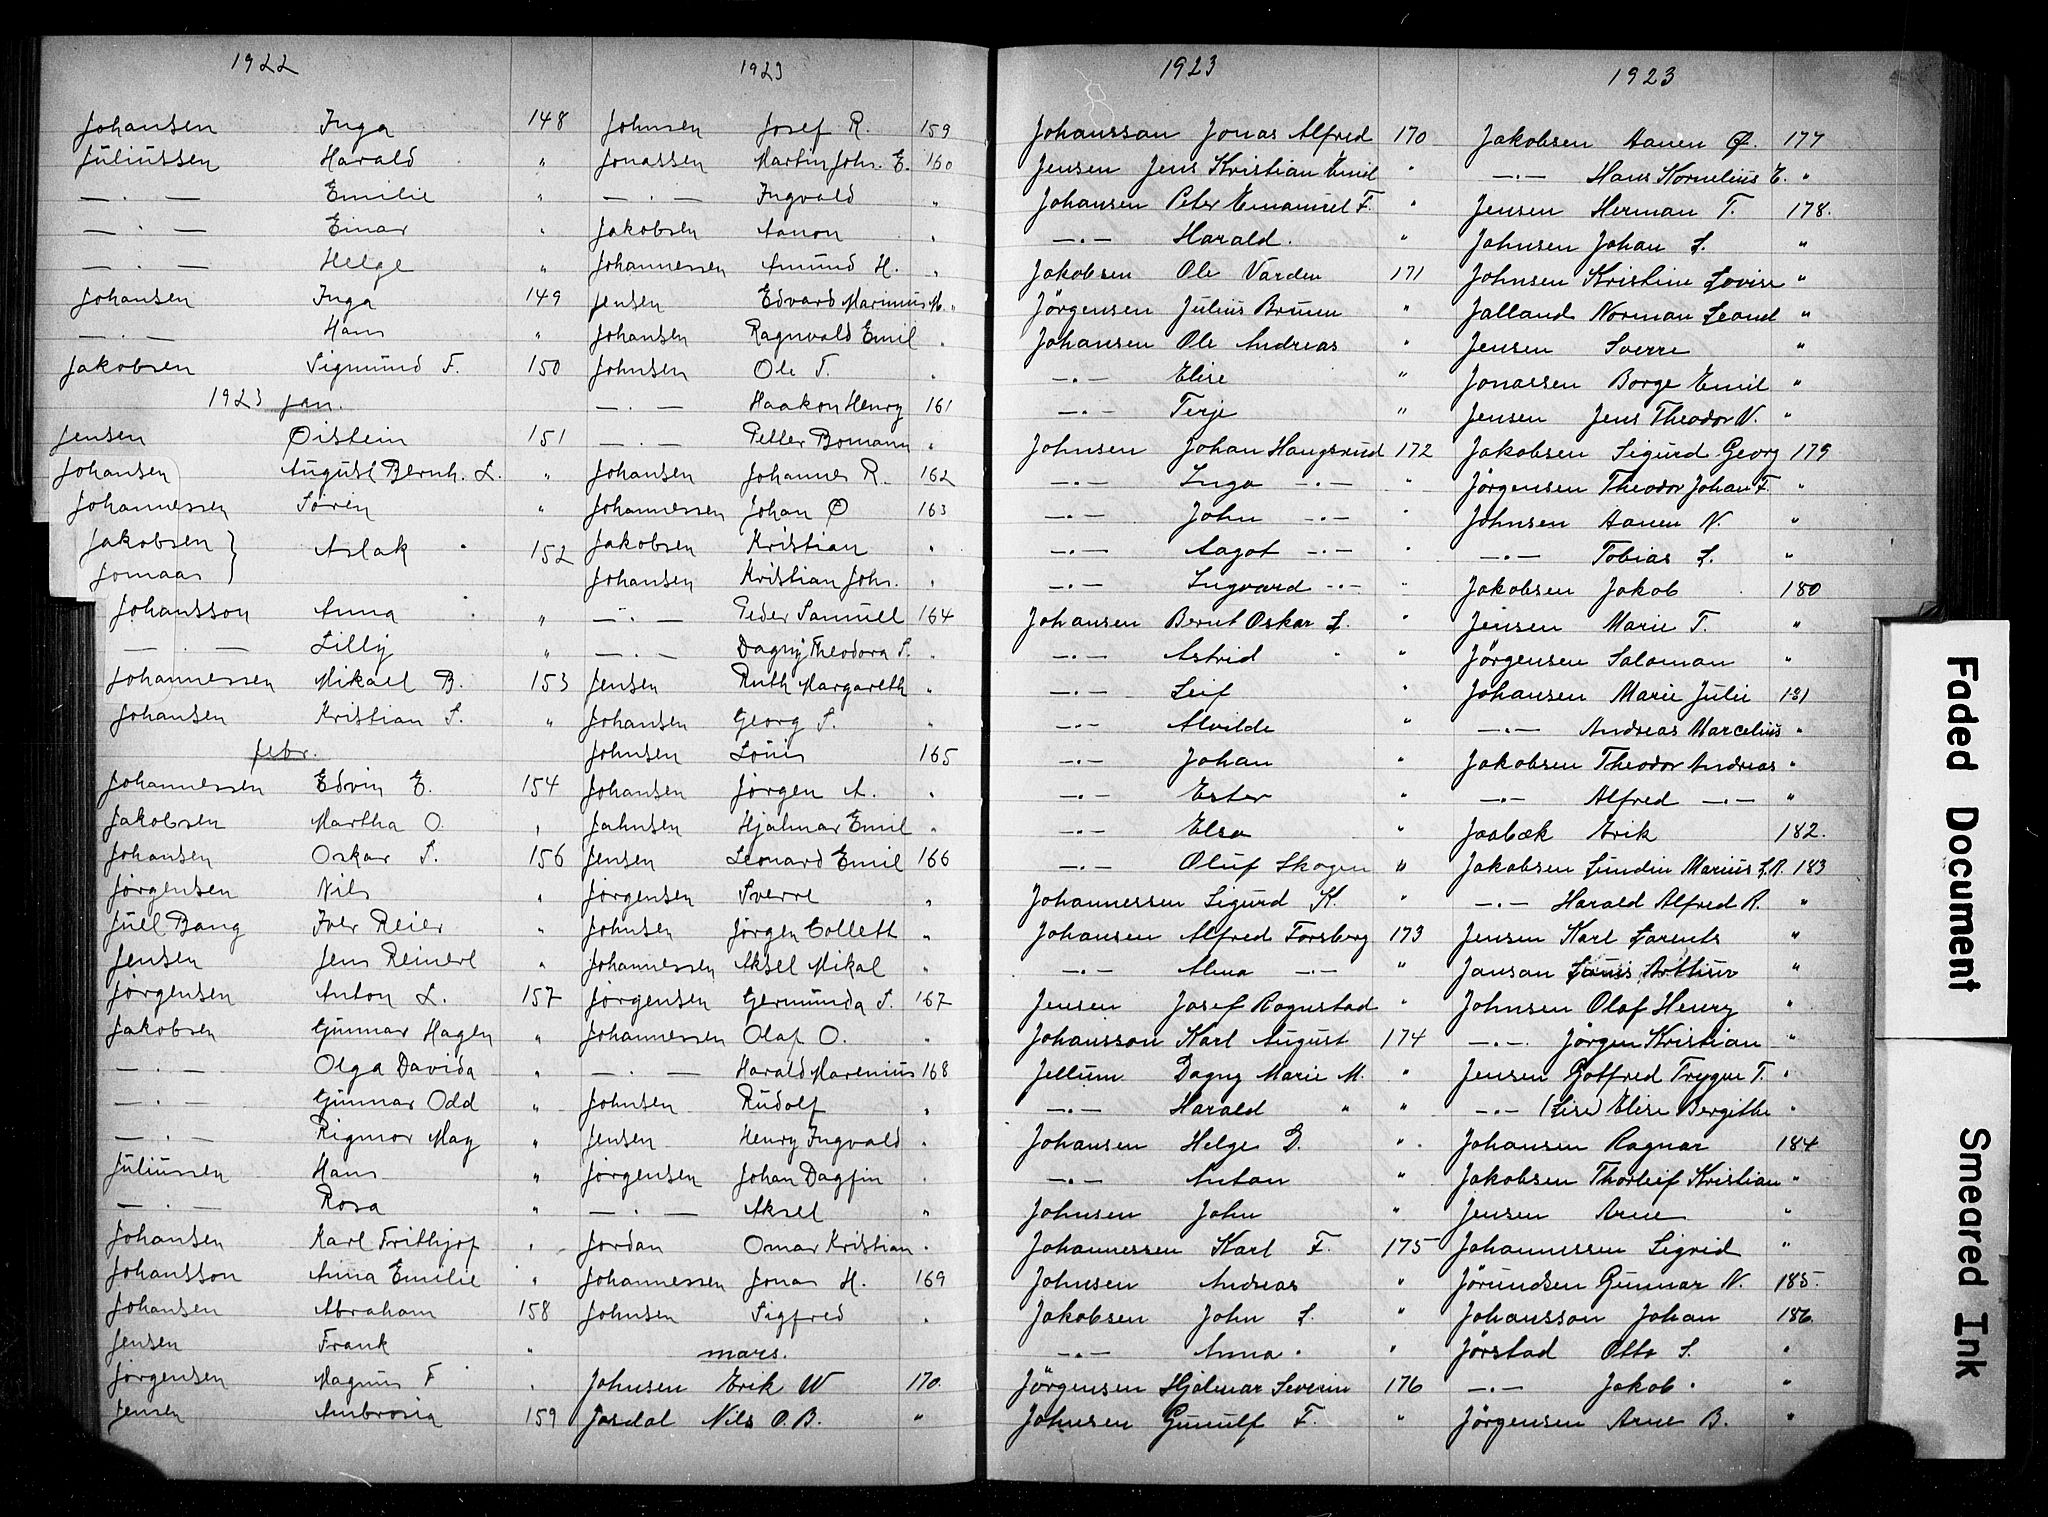 1922
Johansen Inga 148
Juliussen Harald "
— . — Emilie "
— . — Einar "
— . — Helge "
Johansen Inga 149
— . — Hans "
Jakobsen Sigmund F. 150
1923 jan.
Jensen Øistein 151
Johansen August Bernh. L. "
Johannessen Søren "
Jakobsen } Aslak 152
Jomaas }
Johansson Anna "
— . — Lilly "
Johannessen Mikael B. 153
Johansen Kristian S. "
febr.
Johannessen Edvin E. 154
Jakobsen Martha O. "
Johansen Oskar S. 156
Jørgensen Nils "
Juel Bang Iver Reier "
Jensen Jens Reinert "
Jørgensen Anton L. 157
Jakobsen Gunnar Hagen "
— . — Olga Davida "
— . — Gunnar Odd "
— . — Rigmor May "
Juliussen Hans "
— . — Rosa "
Johansen Karl Frithjof "
Johansson Anna Emilie "
Johansen Abraham 158
Jensen Frank "
Jørgensen Magnus F "
Jensen Ambrosia 159
1923
Johnsen Josef R. 159
Jonassen Martin Joh. E. 160
— . — Ingvald "
Jakobsen Aanon "
Johannessen Amund H. "
Jensen Edvard Marinius M. "
Johansen Ragnvald Emil "
Johnsen Ole T. "
— . — Haakon Henry 161
— . — Petter Bomann "
Johansen Johannes R. 162
Johannessen Johan Ø 163
Jakobsen Kristian "
Johansen Kristian Joh. "
— . — Peder Samuel 164
— . — Dagny Theodora S. "
Jensen Ruth Margareth "
Johansen Georg S. "
Johnsen Louis 165
Johansen Jørgen A. "
Johnsen Hjalmar Emil "
Jensen Leonard Emil 166
Jørgensen Sverre "
Johnsen Jørgen Collett "
Johannessen Aksel Mikal "
Jørgensen Germunda S. 167
Johannessen Olaf O. "
— . — Harald Marenius 168
Johnsen Rudolf "
Jensen Henry Ingvald "
Jørgensen Johan Dagfin "
— . — Aksel "
Jordan Omar Kristian "
Johannessen Jonas H. 169
Johnsen Sigfred "
mars.
Johnsen Erik W 170
Josdal Nils O. B. "
1923
Johansson Jonas Alfred 170
Jensen Jens Kristian Emil "
Johansen Peter Emanuel F. "
— . — Harald. "
Jakobsen Ole Varden 171
Jörgensen Julius Bruun "
Johansen Ole Andreas "
— . — Elise "
— . — Terje "
Johnsen Johan Haugsrud 172
— . — Inga — . — "
— . — John — . — "
— . — Aagot — . — "
— . — Ingvard — . — "
Johansen Bernt Oskar L. "
— . — Astrid " "
— . — Leif "
— . — Alvilde "
— . — Johan "
— . — Ester "
— . — Elsa "
— . — Oluf Skogen "
Johannessen Sigurd K. "
Johansen Alfred Forsberg 173
— . — Alma — . — "
Jensen Josef Rognstad "
Johansson Karl August 174
Jellum Dagny Marie M. "
— . — Harald " "
Johansen Helge D. "
— . — Anton "
Johnsen John "
Johannessen Karl F. 175
Johnsen Andreas "
Jakobsen John L. "
— . — Anna "
Jörgensen Hjalmar Severin 176
Johnsen Gunulf F. "
1923
Jakobsen Aanen Ø. 177
— . — Hans Kornelius E. "
Jensen Herman T. 178.
Johnsen Johan L. "
Johnsen Kristine Lovise "
Jalland Norman Leand "
Jensen Sverre "
Jonassen Borge Emil "
Jensen Jens Theodor V. "
Jakobsen Sigurd Georg 179
Jörgensen Theodor Johan F. "
Johnsen Aanen N. "
— . — Tobias L. "
Jakobsen Jakob 180
Jensen Marie T. "
Jörgensen Saloman "
Johansen Marie Julie 181
— . — Andreas Marcelius "
Jakobsen Theodor Andreas "
— . — Alfred — . — "
Jaabæk Erik 182.
Jakobsen Lundin Marius L. R. 183
— . — Harald Alfred R. "
Jensen Karl Larents "
Jansan Louis Arthur "
Johnsen Olaf Henry "
— . — Jörgen Kristian "
Jensen Gotfred Trygve T. "
— . — (Lise) Elise Bergithe "
Johansen Ragnar 184
Jakobsen Thorleif Kristian "
Jensen Arne "
Johannessen Sigrid "
Jörundsen Gunnar N. 185.
Johansson Johan 186
Jörstad Otto S. "
— . — Jakob "
Jörgensen Arne B. "
Faded Document
Smeared Ink